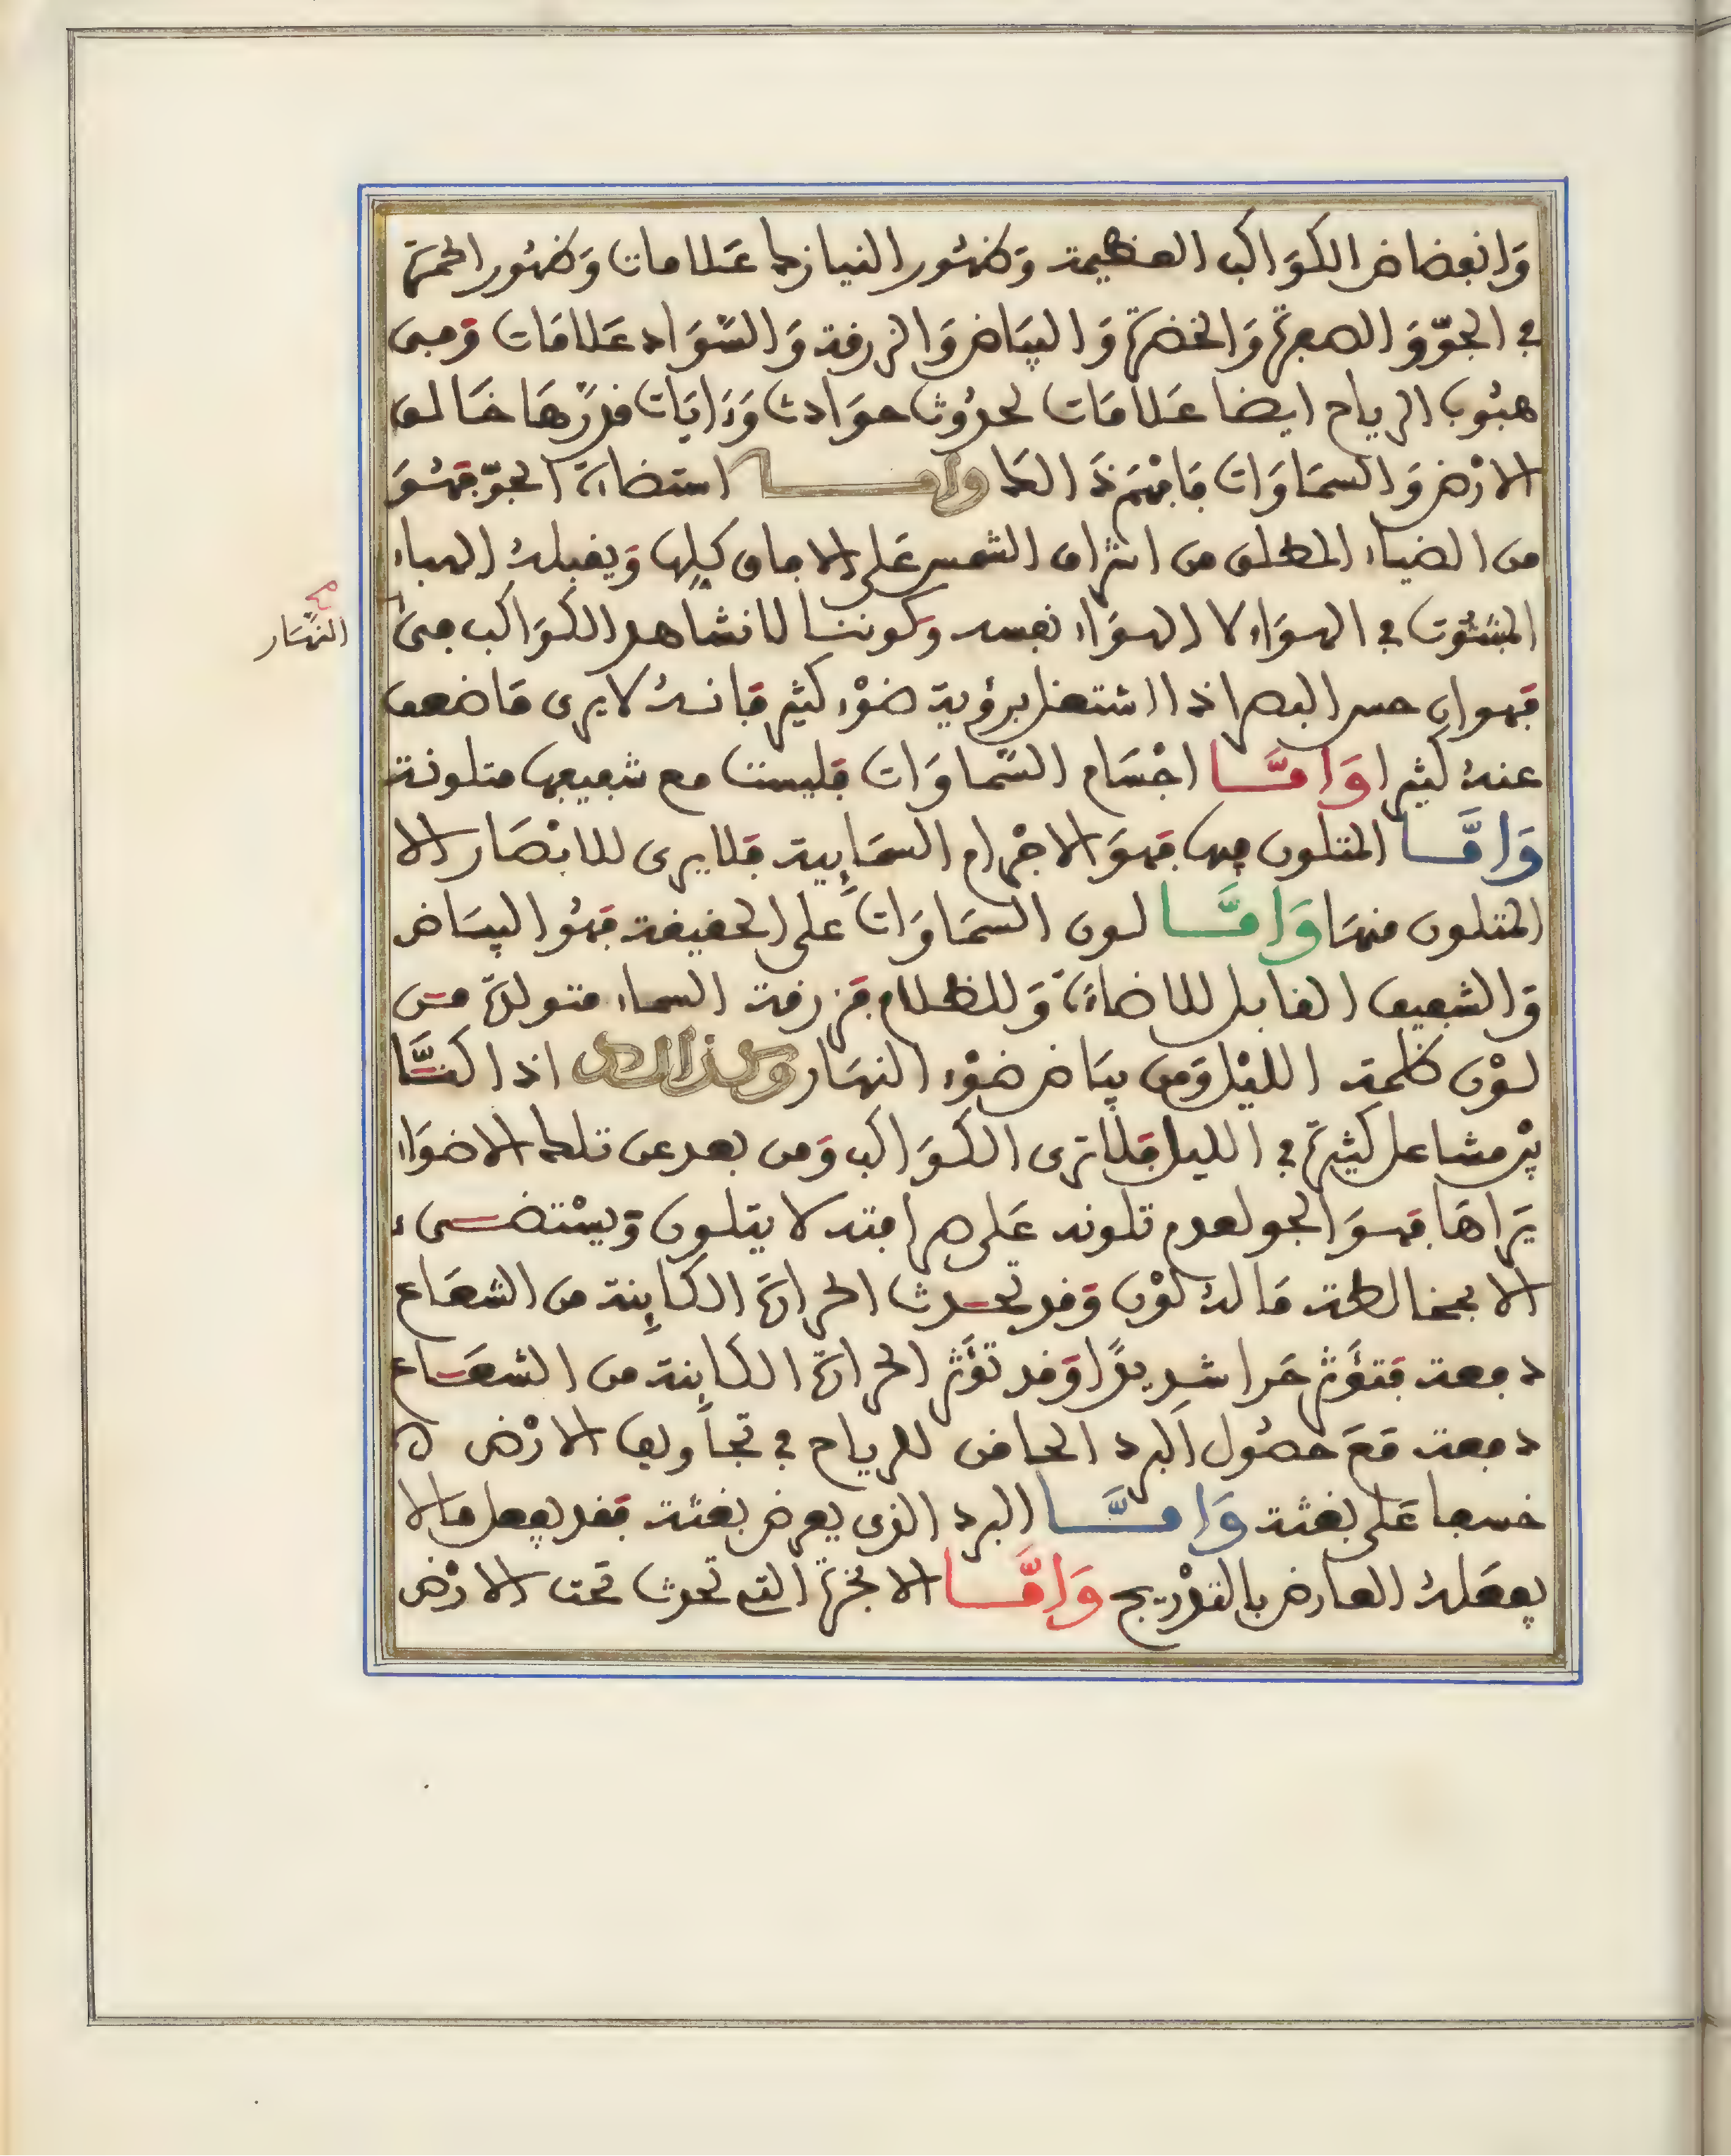 وَانفضاض الكوَاكب العظيمة وَظهُور النيازك عَلامات وَظهُور الحمرَة
في الجوّ وَالصفرَة وَالخضرَة وَالبيَاض وَالزرقة وَالسَّوَاد عَلامَات وَفى
هبُوب الرياح ايضا عَلامَات لحدُوث حوَادث وَرَايَات قدرَها خَالق
الارْض وَالسمَاوَات فَافهَمْ ذَالك وامـا استضاءة الجوّ فهُوَ
من الضياء المطلق من اشراق الشمس عَلى الافاق كلها وَيقبلهُ الهباء
المبثوث في الهوَاء لا الهوَاء نفسه وكوننا لا نشاهد الكوَاكب في
النهَار
فهو ان حس البصر اذا اشتغل برؤية ضوْء كثير فَانهُ لا يرى مَا ضعف
عنهُ كثيرا وَامَّا اجْسَام السّماوَات فليست مع شفيفها متلونة
وَامَّا المتلون فيها فهوَ الاجْرام السمَايية فلا يرى للابْصَار الا
المتلون منهَا وَامَّا لون السمَاوَات على الحقيقة فهُو البيَاض
وَالشفيف القابل للاضاءَة وَللظلام فزرقة السماء متولدة من
لوْن ظلمة الليْل وَمن بيَاض ضوْء النهَار وكذالك اذا كنَّا
بيْن مشاعل كثيرَة في الليل فلا ترى الكوَاكب وَمن بعد عن تلك الاضوَاء
يَراهَا فهوَ الجو لعدم تلونه عَلى صرافته لا يتلون وَيسْتضىء
الا بمخالطة مَا لهُ لوْن وَقد تحدث الحرارَة الكاينة من الشعَاع
دفعة فتؤَثر حَرا شديدًا وَقد تؤَثر الحرارَة الكاينة من الشعَاع
دفعة مَعَ حصُول البرد الحاض للرياح في تجاويف الارْض لا
خسفا عَلى بغثة وَامَّا البرد الذى يعرض بغثة فقد يفعل مَا لا
يفعَلهُ العارض بالتدْريج وَامَّا الابخرَة التي تحدث تحت الارْض